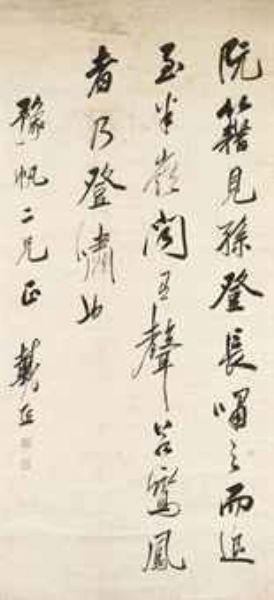 阮籍見孫登長嘯之而退
至半嶺聞有聲若鸞鳳
者乃登嘯也
豫帆二兄正 戴